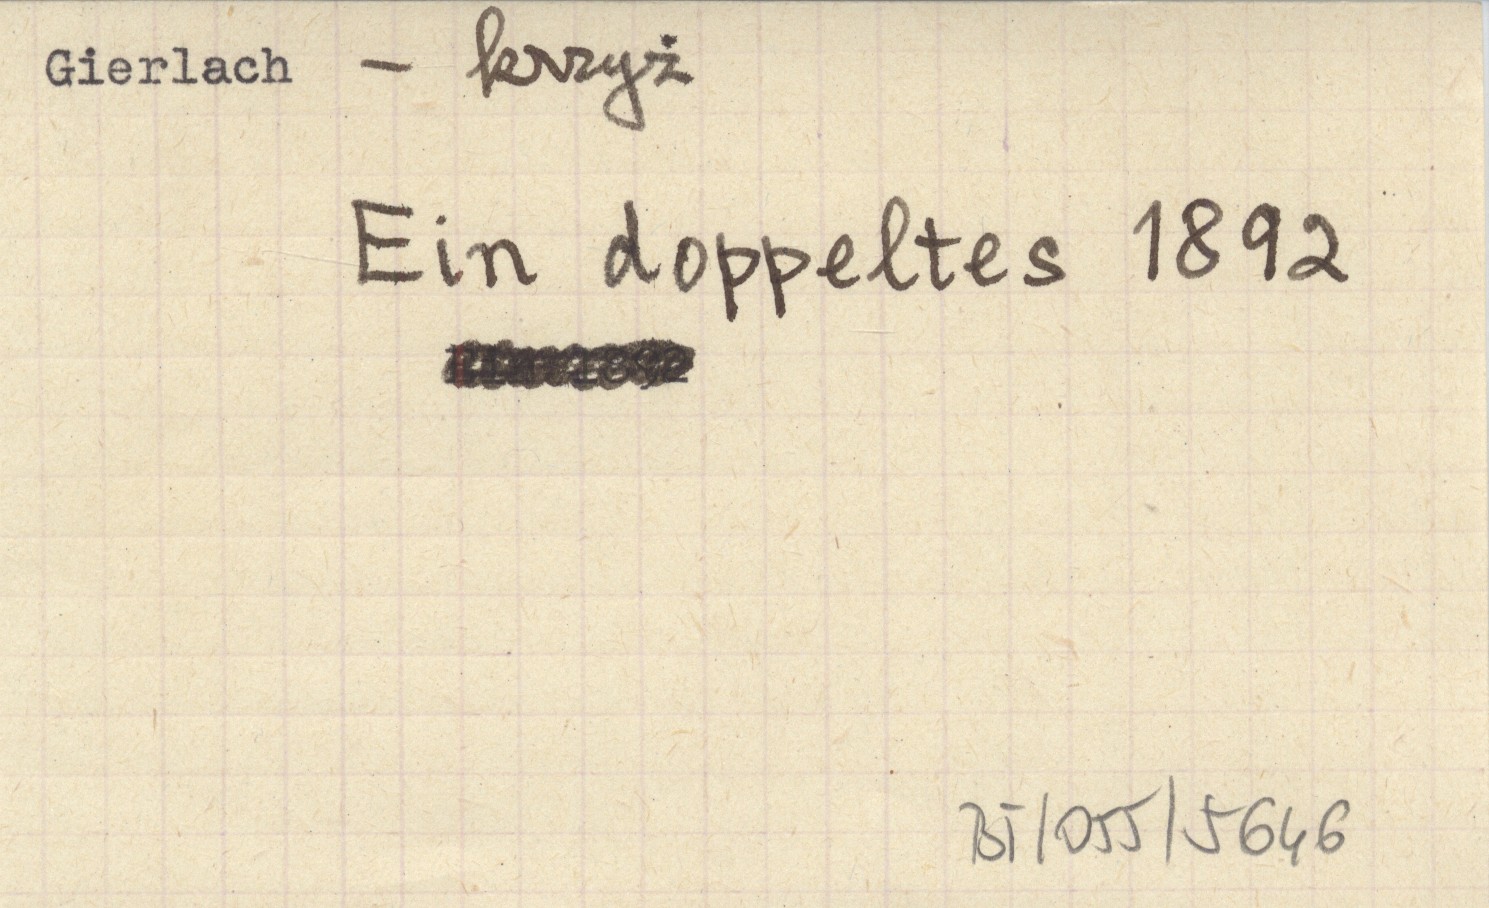 Gierlach – krzyż
Ein doppeltes 1892
BT/055/5646